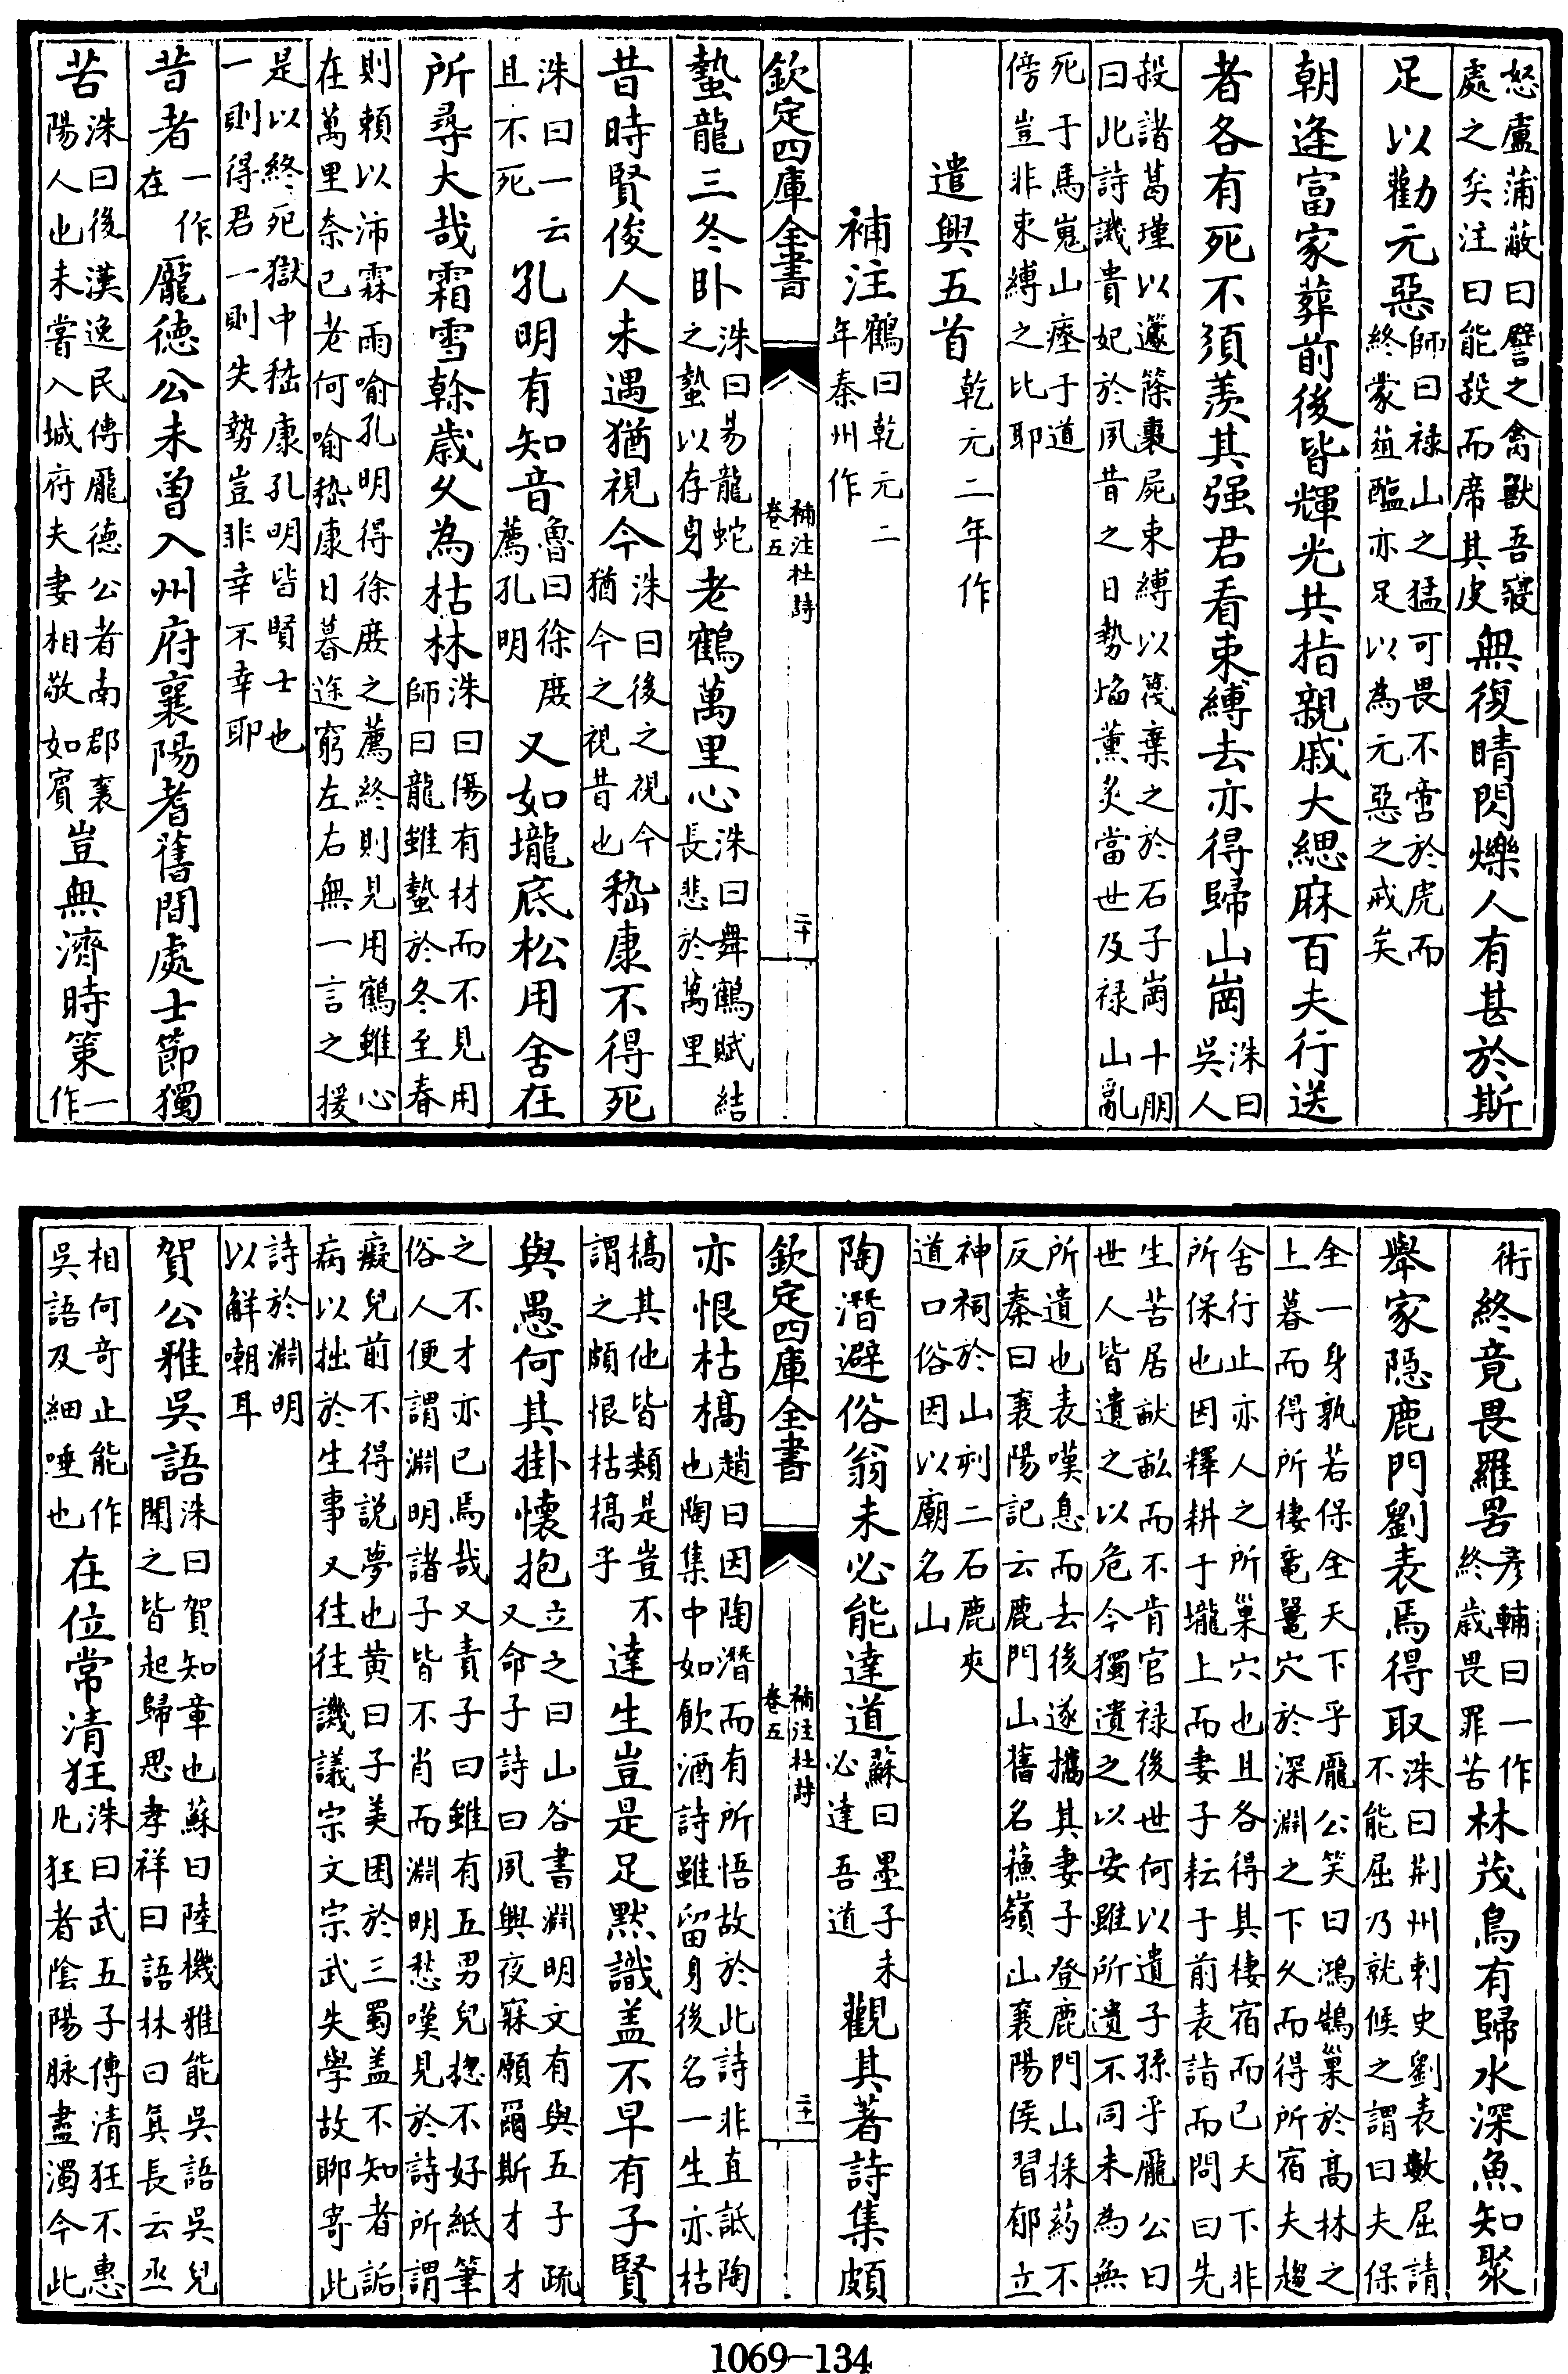 怒盧蒲蔽曰譬之禽獸吾寢
處之矣注曰能殺而席其皮無復睛閃爍人有甚於斯
足以勸元惡師曰禄山之猛可畏不啻於虎而
終蒙葅醢亦足以為元惡之戒矣
朝逢富家葬前後皆輝光共指親戚大緦麻百夫行送
者各有死不須羡其强君看束縛去亦得歸山崗洙曰
吳人
殺諸葛瑾以籧篨裹屍束縛以篾棄之於石子崗十朋
曰此詩譏貴妃於夙昔之日勢焰薰炙當世及禄山亂
死于馬嵬山瘞于道
傍豈非束縛之比耶
遣興五首乾元二年作
補注鶴曰乾元二
年秦州作
欽定四庫全書
補注杜詩
卷五
二十
蟄龍三冬卧洙曰昜龍蛇
之蟄以存身老鶴萬里心洙曰舞鶴賦結
長悲於萬里
昔時賢俊人未遇猶視今洙曰後之視今
猶今之視昔也嵇康不得死
洙曰一云
且不死孔明有知音魯曰徐庻
薦孔明又如壠底松用舍在
所尋大哉霜雪榦歲久為枯林洙曰傷有材而不見用
師曰龍雖蟄於冬至春
則頼以沛霖雨喻孔明得徐庻之薦終則見用鶴雖心
在萬里奈已老何喻嵇康日暮途窮左右無一言之援
是以終死獄中嵇康孔明皆賢士也
一則得君一則失勢豈非幸不幸耶
昔者一作
在龎德公未曽入州府襄陽耆舊間處士節獨
苦洙曰後漢逸民傳龎德公者南郡襄
陽人也未嘗入城府夫妻相敬如賓豈無濟時策一
作
術終竟畏羅罟彥輔曰一作
終歲畏罪苦林茂鳥有歸水深魚知聚
舉家隠鹿門劉表焉得取洙曰荆州刺史劉表數屈請
不能屈乃就候之謂曰夫保
全一身孰若保全天下乎龎公笑曰鴻鵠巢於髙林之
上暮而得所棲黿鼉穴於深淵之下久而得所宿夫趨
舍行止亦人之所巢穴也且各得其棲宿而已天下非
所保也因釋耕于壠上而妻子耘于前表詣而問曰先
生苦居畎畝而不肯官禄後世何以遺子孫乎龎公曰
世人皆遺之以危今獨遺之以安雖所遺不同未為無
所遺也表嘆息而去後遂攜其妻子登鹿門山採葯不
反秦曰襄陽記云鹿門山舊名蘓嶺山襄陽侯習郁立
神祠於山刻二石鹿夾
道口俗因以廟名山
陶潛避俗翁未必能達道蘇曰墨子未
必達吾道觀其著詩集頗
欽定四庫全書
補注杜詩
卷五
二十一
亦恨枯槁趙曰因陶潛而有所悟故於此詩非直詆陶
也陶集中如飲酒詩雖留身後名一生亦枯
槁其他皆類是豈不
謂之頗恨枯槁乎達生豈是足黙識盖不早有子賢
與愚何其掛懷抱立之曰山谷書淵明文有與五子疏
又命子詩曰夙興夜寐願爾斯才才
之不才亦已焉哉又責子曰雖有五男兒揔不好紙筆
俗人便謂淵明諸子皆不肖而淵明愁嘆見於詩所謂
癡兒前不得説夢也黄曰子美困於三蜀盖不知者詬
病以拙於生事又往往譏議宗文宗武失學故聊寄此
詩於淵明
以解嘲耳
賀公雅吳語洙曰賀知章也蘇曰陸機雅能吳語吳兒
聞之皆起歸思孝祥曰語林曰眞長云丞
相何奇止能作
吳語及細唾也在位常清狂洙曰武五子傳清狂不惠
凡狂者隂陽脉盡濁今此
1069-134